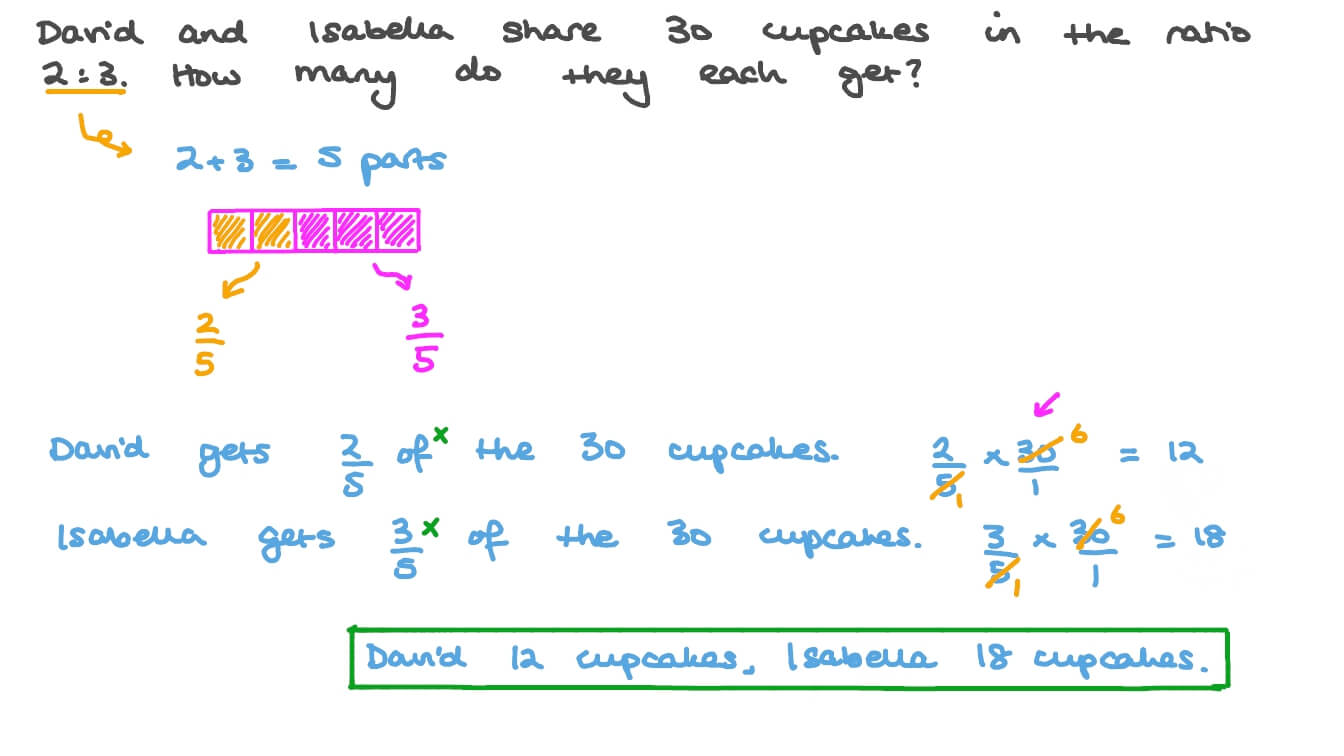 David and Isabella share 30 cupcakes in the ratio
2:3. How many do they each get?
2+3 = 5 parts
2/5 3/5
David gets 2/5 of x the 30 cupcakes. 2/5 1 x 30 6/1 = 12
Isabella gets 3/5 x of the 30 cupcakes. 3/5 1 x 30 6/1 = 18
David 12 cupcakes, Isabella 18 cupcakes.